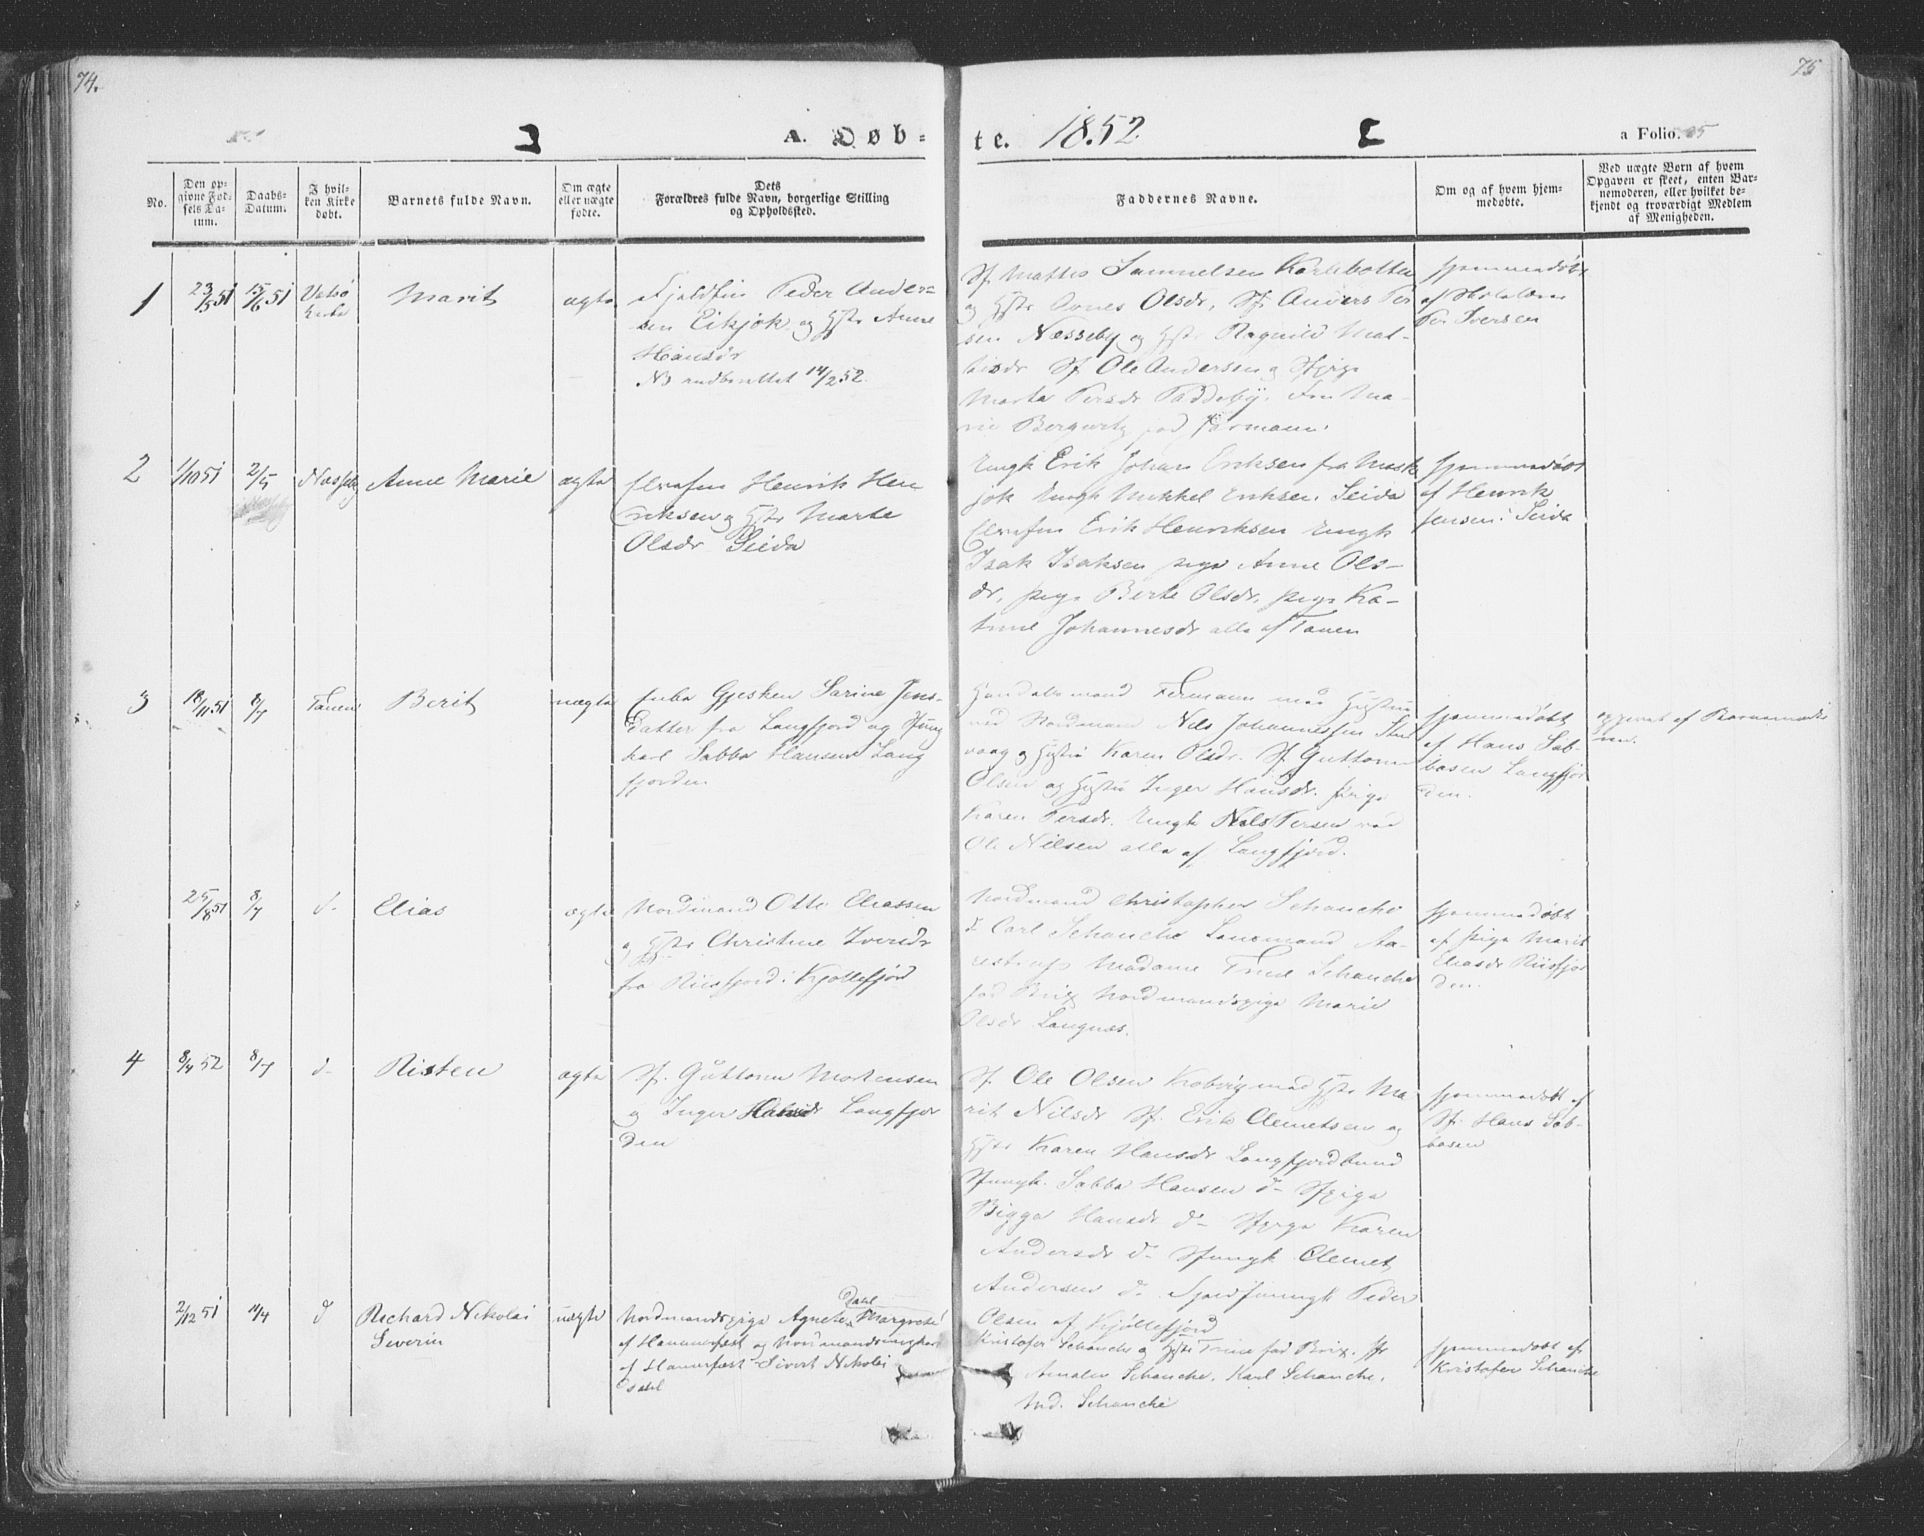 74.
75
A. Døb-
te. 1852
a Folio.
No.
Den op-
givne Fød-
sels Da-
tum.
Daabs-
Datum.
I hvil-
ken Kirke
døbt.
Barnets fulde Navn.
Om ægte
eller uægte
fødte.
Dets
Forældres fulde Navn, borgerlige Stilling
og Opholdssted.
Faddernes Navne.
Om og af hvem hjem-
medøbte.
Ved uægte Børn af hvem
Opgaven er skeet, enten Bar-
nemoderen, eller hvilket be-
kjendt og troværdigt Medlem
af Menigheden.
1
23/5 51
15/6 51
Vadsø
Kirke
Marit
ægte
Fjeldfin Peder Ander-
sen Eikjok og Hstr Anne
Hansdr
NB indberettet 14/2 52.
Sf. Mattis Samuelsen Karlebotten
og Hstr Agnes Olsdr, Sf. Anders Per
sen Næsseby og Hstr Ragnild Mat-
tisdr Sf Ole Andersen og Sfpige
Marta Persdr Paddeby. Fru Ma-
rie født
hjemmedøbt
af
Per Iversen
2
1/10 51
2/5
Næsseby
Anne Marie
ægte
Elvefin Henrik Hen
riksen og Hstr Marte
Olsdr Seida
Ungk Erik Johan Eriksen fra Mask
jok Ungk Mikkel Eriksen Seida
Elvefin Erik Henriksen Ungk
Isak Isaksen pige Anne Ols-
dr, pige Berte Olsdr, pige Ka-
trine Johannesdr alle af Tanen
hjemmedøbt
af Henrik
Jensen Seida
3
18/11 51
8/7
Tanen
Berit
uægte
Enke Gjesken Sarine Jens-
Datter fra Langfjord og Sfung
karl Sabba Hansen Lang
fjorden
Handelsmand Fermann med Hustru
ved Nordmand Nils Johannessen
vaag og Hustru Karen Olsdr. Sf. Guttorm
Olsen og Hustru Inger Hansdr. pige
Karen Persdr. Ungk Nils Persen ved
Ole Nilsen alle af Langfjord.
hjemmedøbt
af Hans Sab-
basen Langfjor
den.
opgivet af Barnemode
ren.
25/8 51
8/7
d-
Elias
ægte
Nordmand Otto Eliassen
og Hstr Christine Iversdr
fra Riisfjord i Kjøllefjord
Nordmand Christopher Schanche
d Carl Schanche Lensmand Aa-
restrup Madame Trine Schanche
fød Brix Nordmandspige Marie
Olsdr Langnes.
hjemmedøbt
af pige Marit
Eliasdr Riisfjor
den.
4
8/4 52
8/7
d-
Risten
ægte
Sf. Guttorm Mortensen
og Inger Hansdr Langfjor
den
Sf. Ole Olsen Kobvig med Hstr Ma
rit Nilsdr Sf. Erik Clemetsen og
Hstr Karen Hansdr Langfjordbund
Sfungk. Sabba Hansen d- Sfpige
Bigga Hansdr d- Sfpige Karen
Andersdr d- Sfungk Clemet
Andersen d- Peder
Olsen af Kjøllefjord
hjemmedøbt af
Sf. Hans Sab-
basen
2/12 51
11/4
d
Richard Nikolai
Severin
uægte
Nordmandspige Agnete Dahl Margrete
af Hammerfest og Nordmandsungkarl
af Hamerfest Sivert Nikolai
Dahl
Kristofer Schanche og Hstr Trine fød Brix. Jfr
Amalie Schanche, Karl Schanche,
Md. Schanche
hjemmedøbt af
Kristofer Schanche